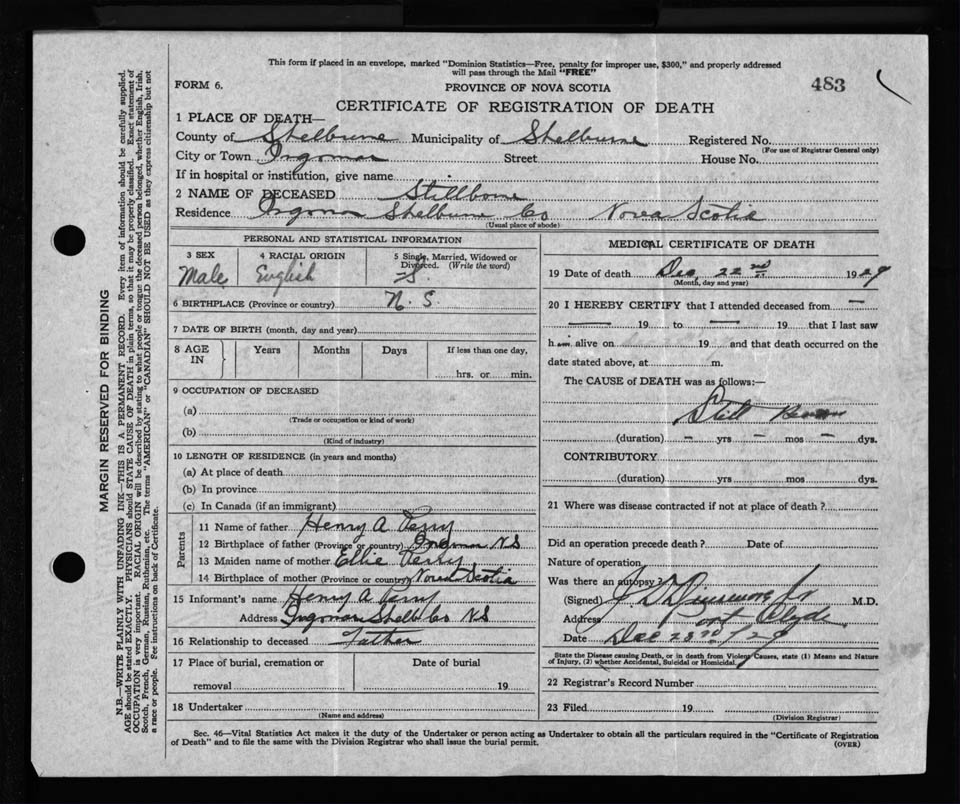 This form if placed in an envelope, marked "Dominion Statistics—Free, penalty for improper use, $300," and properly addressed
will pass through the Mail "FREE"
FORM 6.
PROVINCE OF NOVA SCOTIA
483
CERTIFICATE OF REGISTRATION OF DEATH
1 PLACE OF DEATH—
County of Shelburne Municipality of Shelburne Registered No.
(For use of Registrar General only)
City or Town Ingomar Street House No.
If in hospital or institution, give name
2 NAME OF DECEASED Stillborn
Residence Ingomar Shelburne Co Nova Scotia
(Usual place of abode)
PERSONAL AND STATISTICAL INFORMATION
3 SEX 4 RACIAL ORIGIN 5 Single, Married, Widowed or
Divorced. (Write the word)
Male English S.
6 BIRTHPLACE (Province or country) N. S.
7 DATE OF BIRTH (month, day and year)
8 AGE IN Years Months Days If less than one day,
hrs. or min.
9 OCCUPATION OF DECEASED
(a)
(Trade or occupation or kind of work)
(b)
(Kind of industry)
10 LENGTH OF RESIDENCE (in years and months)
(a) At place of death
(b) In province
(c) In Canada (if an immigrant)
Parents
11 Name of father Henry A Perry
12 Birthplace of father (Province or country) Ingomar N S
13 Maiden name of mother Ellie Perry
14 Birthplace of mother (Province or country) Nova Scotia
15 Informant's name Henry A Perry
Address Ingomar Shelb Co NS
16 Relationship to deceased Father
17 Place of burial, cremation or Date of burial
removal 19
18 Undertaker
(Name and address)
MEDICAL CERTIFICATE OF DEATH
19 Date of death Dec 22nd 1929
(Month, day and year)
20 I HEREBY CERTIFY that I attended deceased from —
— 19 to — 19 that I last saw
h alive on 19 and that death occurred on the
date stated above, at m.
The CAUSE of DEATH was as follows:—
Still Born
(duration) – yrs – mos – dys.
CONTRIBUTORY
(duration) yrs mos dys.
21 Where was disease contracted if not at place of death?
Did an operation precede death? Date of
Nature of operation
Was there an autopsy?
(Signed) M.D.
Address Port Clyde
Date Dec 23rd/29
State the Disease causing Death, or in death from Violent Causes, state (1) Means and Nature
of Injury, (2) whether Accidental, Suicidal or Homicidal.
22 Registrar's Record Number
23 Filed 19
(Division Registrar)
Sec. 46—Vital Statistics Act makes it the duty of the Undertaker or person acting as Undertaker to obtain all the particulars required in the "Certificate of Registration
of Death" and to file the same with the Division Registrar who shall issue the burial permit.
(OVER)
MARGIN RESERVED FOR BINDING
N.B.—WRITE PLAINLY WITH UNFADING INK—THIS IS A PERMANENT RECORD. Every item of information should be carefully supplied.
AGE should be stated EXACTLY. PHYSICIANS should STATE CAUSE OF DEATH in plain terms, so that it may be properly classified. Exact statement of
OCCUPATION is very important. RACIAL ORIGIN will be described by stating to what people or tongue the deceased person belonged, whether English, Irish,
Scotch, French, German, Russian, Ruthenian, etc. The terms "AMERICAN" or "CANADIAN" SHOULD NOT BE USED as they express citizenship but not
a race or people. Fee instructions on back of Certificate.